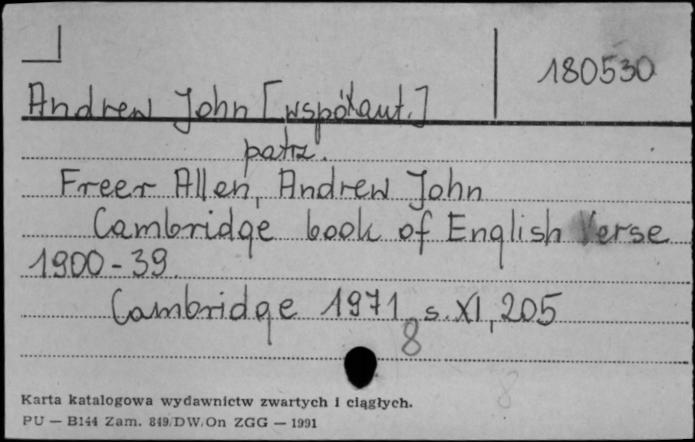 180530
Andrew John [współaut.]
patrz.
Freer Allen, Andrew John
Cambridge book of English Verse
1900-39.
Cambridge 1971 s. XI, 205
8
8
Karta katalogowa wydawnictw zwartych i ciągłych.
PU — B144 Zam. 849/DW/On ZGG — 1991